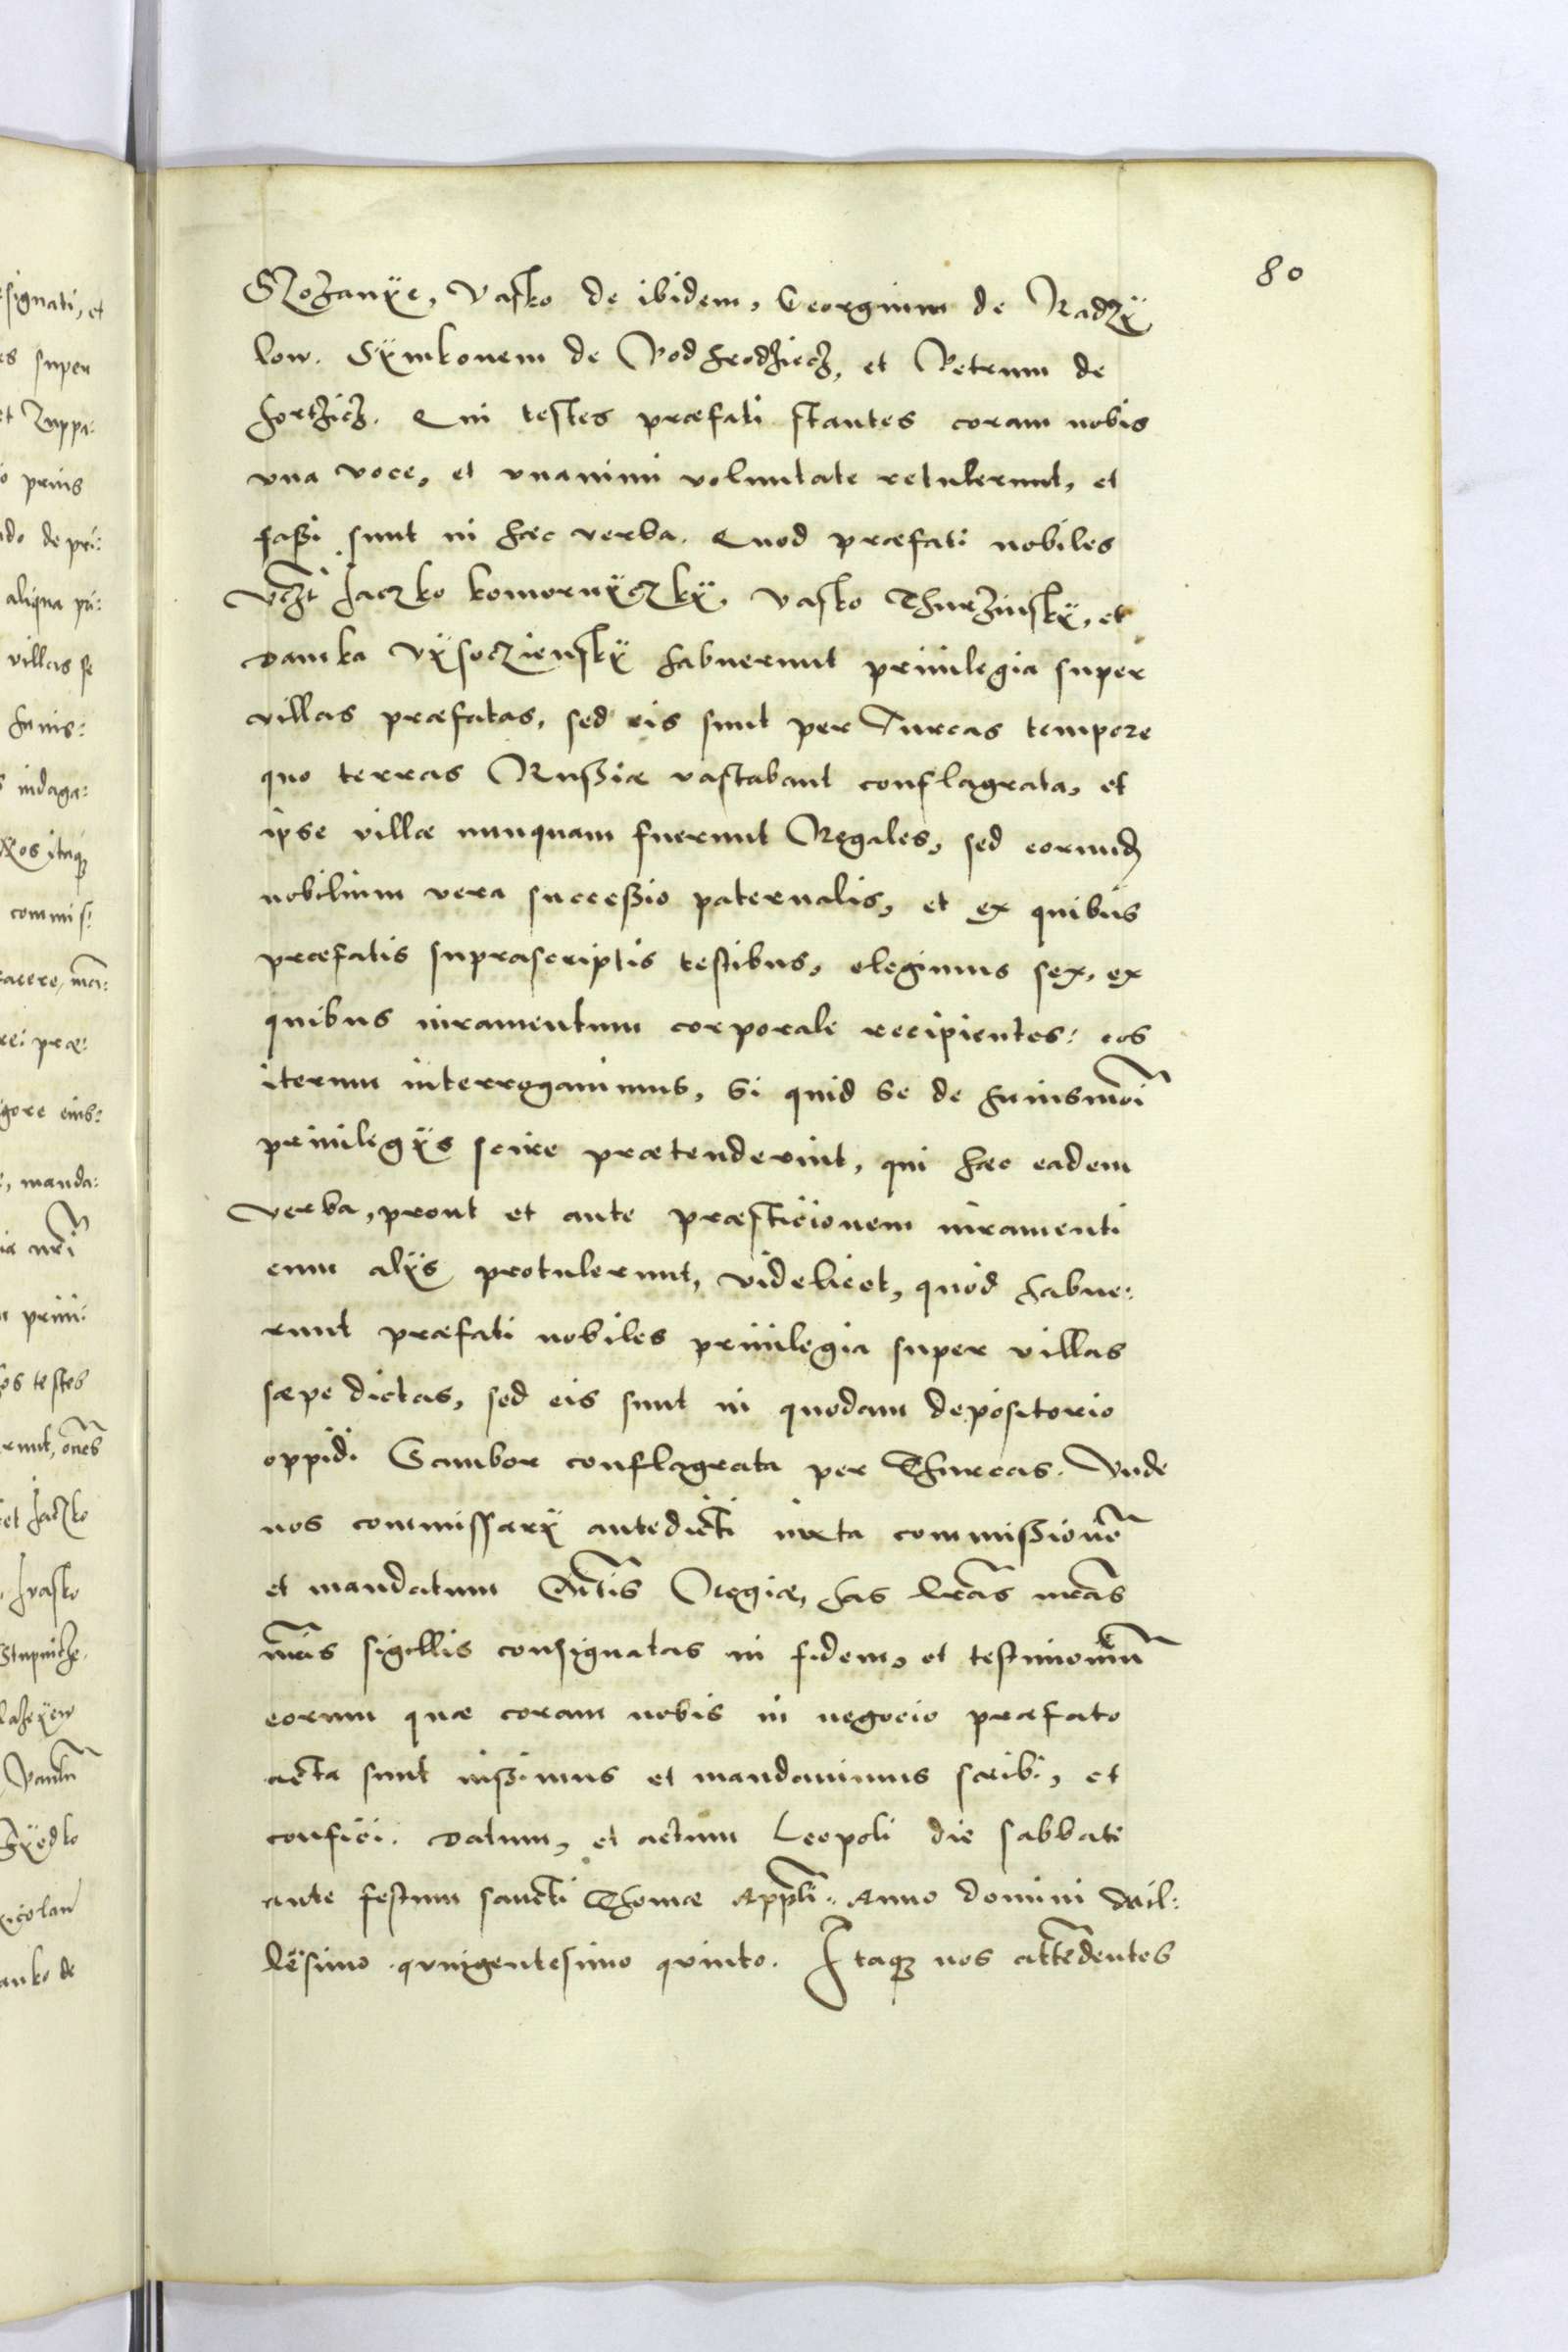 80
Slozanÿe, Vasko de ibidem, Georgium de Radzÿ
low. Sÿmkonem de Podhrodziecz, et Petrum de
hortzicz. Qui testes præfati stantes coram nobis
vna voce, et vnanimi voluntate retulerunt, et
faßi sunt in hæc verba. Quod præfati nobiles
vczt Jaczko komornÿczkÿ, Vasko Thurzinskÿ, et
Damka Vÿsocziensky habuerunt priuilegia super
villas præfatas, sed eis sunt per Turcas tempore
quo terras Rußiæ vastabant conflagrata, et
ipse villæ nunquam fuerunt Regales, sed eorund
nobilium vera succeßio paternalis, et ex quibus
præfatis suprascriptis testibus, elegimus sex, ex
quibus iuramentum corporale recipientes: eos
iterum interrogauimus, si quid se de huiusmoi
priuilegÿs scire prætenderint, qui hæc eadem
verba, prout et ante præsticionem iuramenti
cum alÿs protulerunt, videlicet, quod habue:
runt præfati nobiles priuilegia super villas
sæpe dictas, sed eis sunt in quodam depositorio
oppidi Sambor conflagrata per Thurcas. Vnde
nos commissarÿ antedicti iuxta commißione
et mandatum Mtis Regiæ, has lras nras
nris sigillis consignatas in fidem, et testimonium
eorum quæ coram nobis in negocio præfato
acta sunt iußimus et mandauimus scribi, et
confici. Datum, et actum Leopoli die sabbati
ante festum sancti Thomæ Appli. Anno domini Mil:
lesimo quingentesimo quinto. Itaq nos attendentes
esignati, et
es super
et Zuppa:
o prius
do de pri:
aliqua pri:
villas se
huius:
indaga:
Nos itaq
commis:
facere, ma:
rei præ:
gore eius:
, manda:
nri
priui:
os testes
runt, oes
et Jaczko
Jvasko
Stupnicze
Fÿedko
Nicolau
anko de